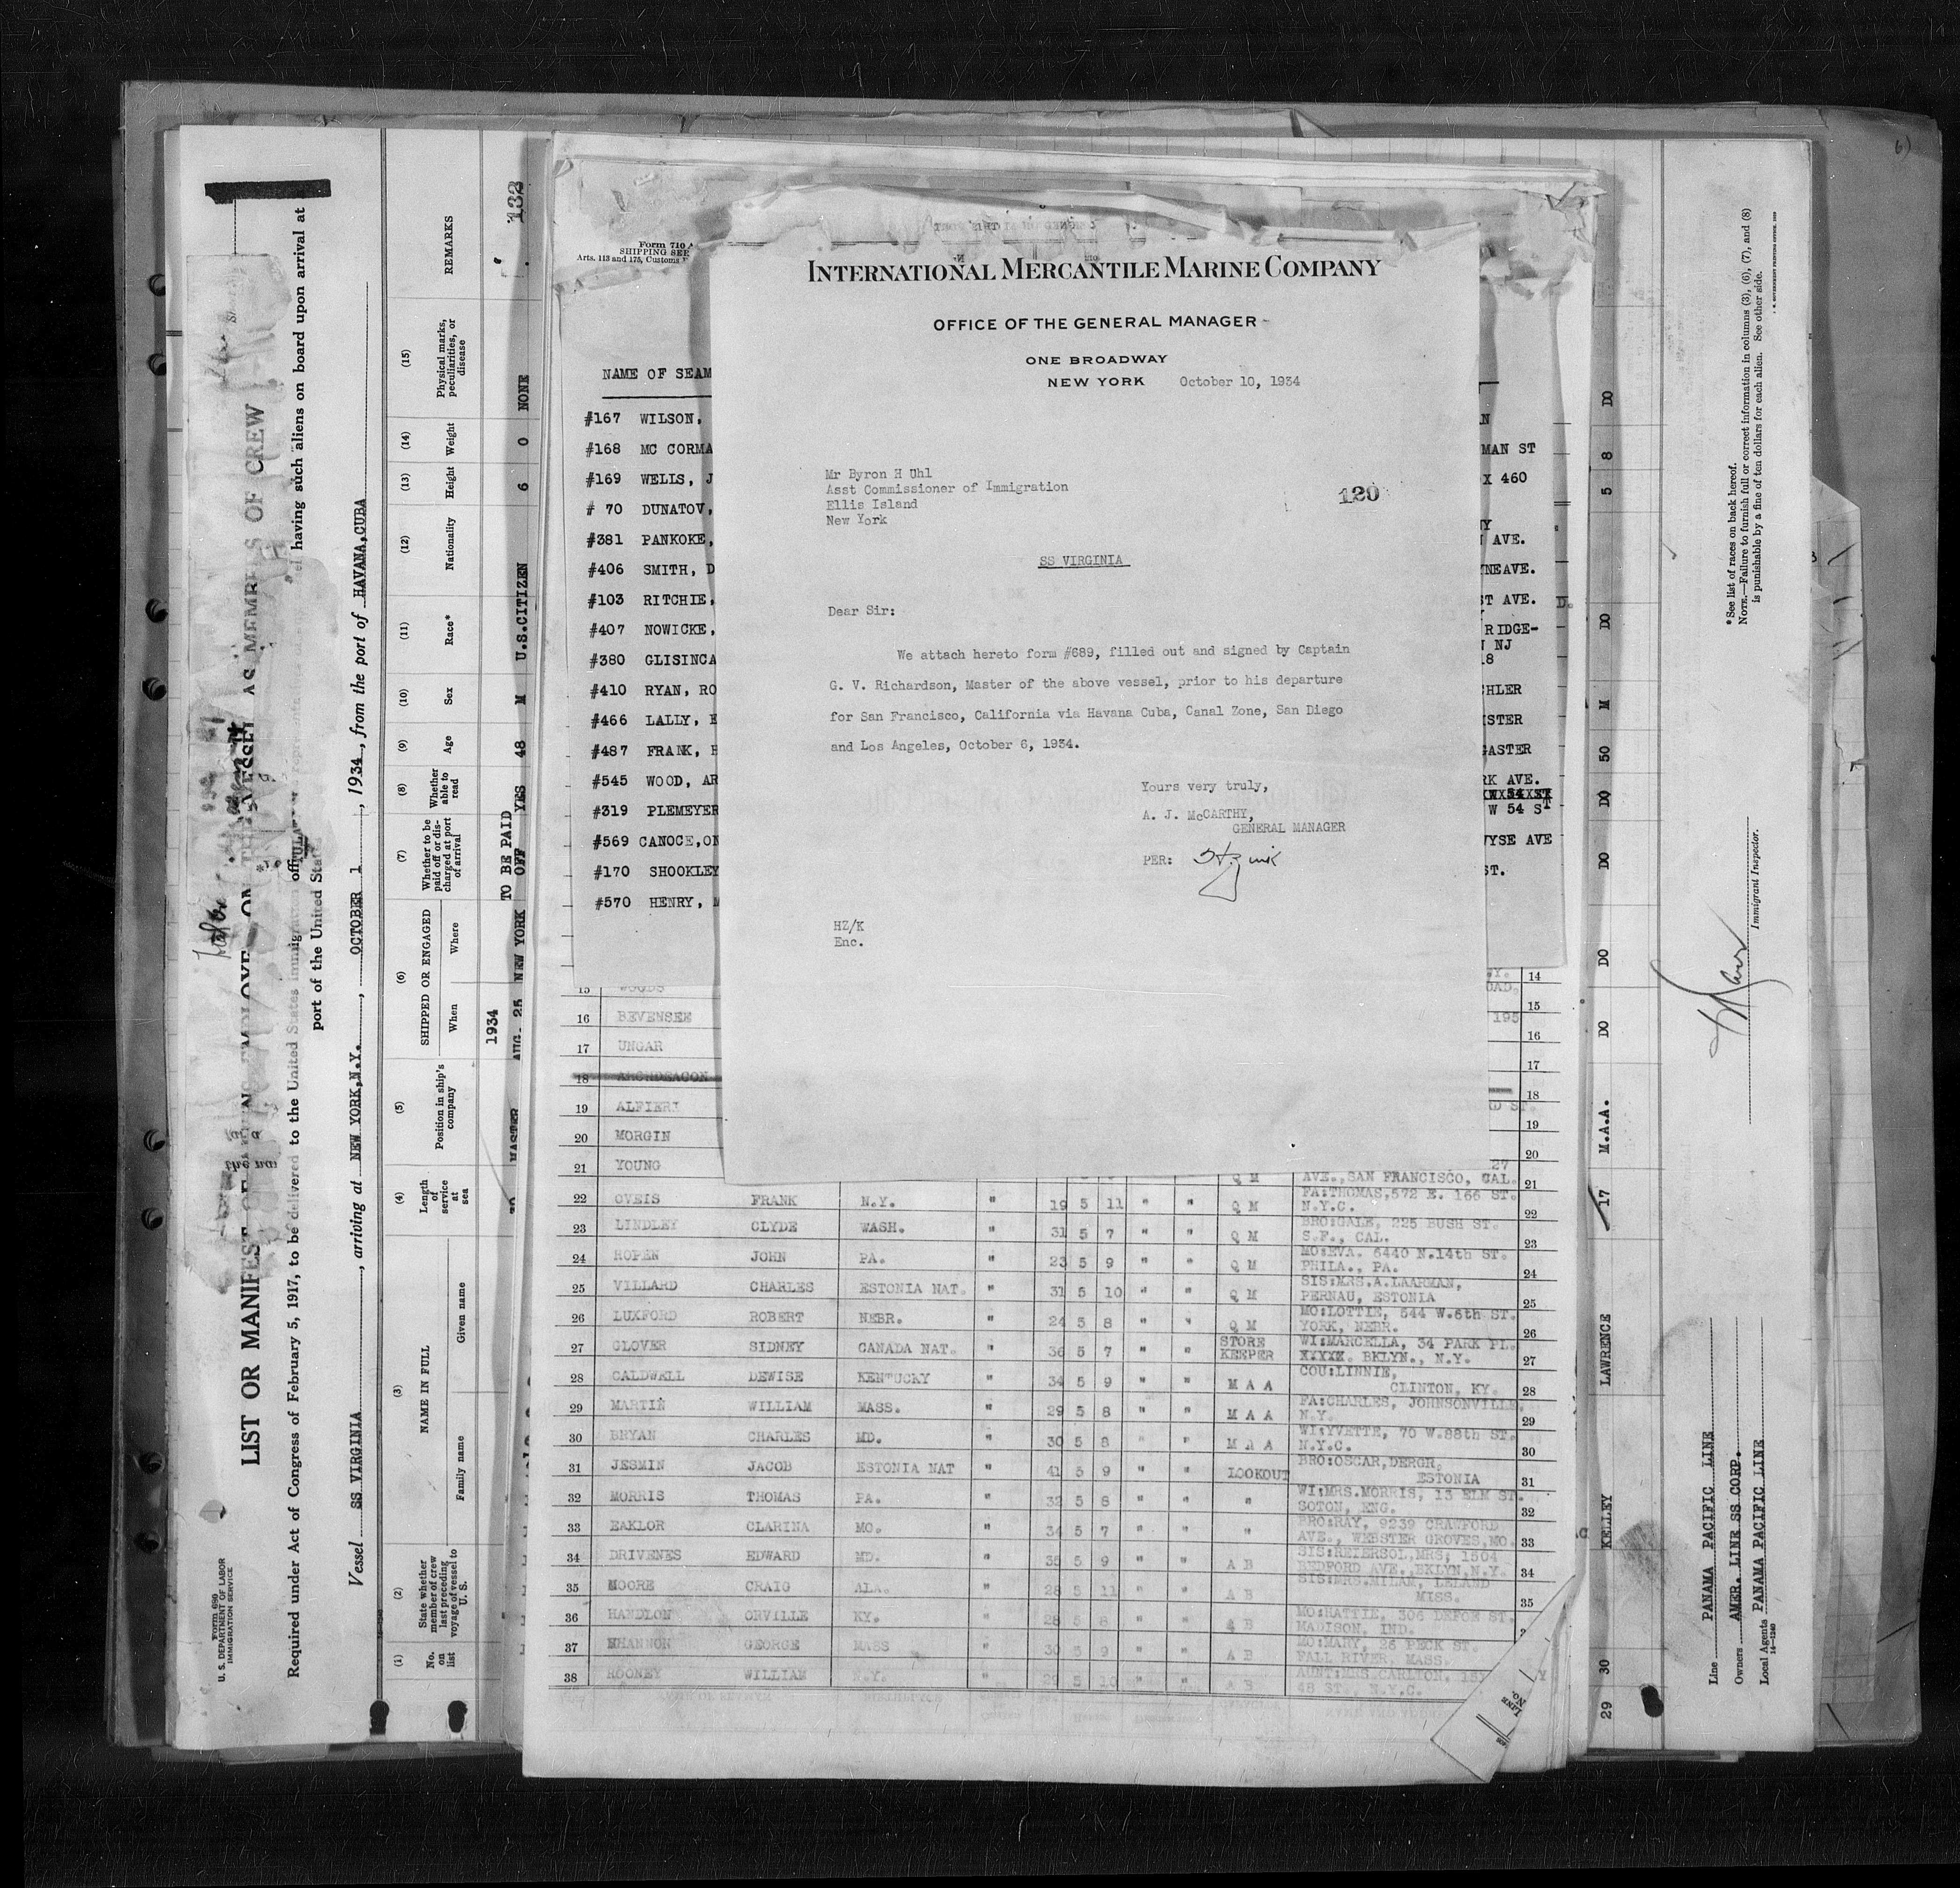 INTERNATIONAL MERCANTILE MARINE COMPANY
OFFICE OF THE GENERAL MANAGER
ONE BROADWAY
NEW YORK October 10, 1934
Mr Byron H Uhl
Asst Commissioner of Immigration
Ellis Island
New York
120
SS VIRGINIA
Dear Sir:
We attach hereto form #689, filled out and signed by Captain
G. V. Richardson, Master of the above vessel, prior to his departure
for San Francisco, California via Havana Cuba, Canal Zone, San Diego
and Los Angeles, October 6, 1934.
Yours very truly,
A. J. McCARTHY,
GENERAL MANAGER
PER:
HZ/K
Enc.
Form 710
Arts. 113 and 175, Customs
NAME OF SEAM
#167 WILSON,
#168 MC CORMA
MAN ST
#169 WELLS, J
X 460
# 70 DUNATOV,
#381 PANKOKE,
AVE.
#406 SMITH, D
NEAVE.
#103 RITCHIE,
ST AVE.
#407 NOWICKE,
RIDGE-
NJ
#380 GLISINCA
#410 RYAN, RO
HLER
#466 LALLY, E
STER
#487 FRANK, H
ASTER
#545 WOOD, AR
RK AVE.
#319 PLEMEYER
W 54 ST
#569 CANOCE, ON
VYSE AVE
#170 SHOOKLEY
ST.
#570 HENRY, M
14
15 WOODS 15
16 BEVENSEE 195 16
17 UNGAR 17
18 ARCHDEACON 18
19 ALFIERI 19
20 MORGIN 20
21 YOUNG Q M AVE., SAN FRANCISCO, CAL. 21
22 OVEIS FRANK N.Y. " 19 5 11 " " Q M FA:THOMAS,572 E. 166 ST. N.Y.C. 22
23 LINDLEY CLYDE WASH. " 31 5 7 " " Q M BRO:GALE, 225 BUSH ST. S.F., CAL. 23
24 ROPEN JOHN PA. " 23 5 9 " " Q M MO:EVA. 6440 N.14th ST. PHILA., PA. 24
25 VILLARD CHARLES ESTONIA NAT. " 31 5 10 " " Q M SIS:MRS.A.LAARMAN, PERNAU, ESTONIA 25
26 LUXFORD ROBERT NEBR. " 24 5 8 " " Q M MO:LOTTIE, 544 W.6th ST. YORK, NEBR. 26
27 GLOVER SIDNEY CANADA NAT. " 36 5 7 " " STORE KEEPER WI:MARCELLA, 34 PARK PL. XXXXX. BKLYN., N.Y. 27
28 CALDWELL DEWISE KENTUCKY " 34 5 9 " " M A A COU:LINNIE, CLINTON, KY. 28
29 MARTIN WILLIAM MASS. " 29 5 8 " " M A A FA:CHARLES, JOHNSONVILLE, N.Y. 29
30 BRYAN CHARLES MD. " 30 5 8 " " M A A WI:YVETTE, 70 W.88th ST. N.Y.C. 30
31 JESMIN JACOB ESTONIA NAT " 41 5 9 " " LOOKOUT BRO:OSCAR, ESTONIA 31
32 MORRIS THOMAS PA. " 32 5 8 " " " WI:MRS.MORRIS, 13 ELM ST. SOTON, ENG. 32
33 EAKLOR CLARINA MO. " 34 5 7 " " " BRO:RAY, 9239 CRAWFORD AVE., WEBSTER GROVES,MO. 33
34 DRIVENES EDWARD MD. " 35 5 9 " " A B SIS:REIERSOL,MRS, 1504 BEDFORD AVE.,BKLYN,N.Y. 34
35 MOORE CRAIG ALA. " 28 5 11 " " A B SIS:MRS.MILAM, LELAND MISS. 35
36 HANDLON ORVILLE KY. " 28 5 8 " " A B MO:HATTIE, 306 DEFOE ST. MADISON, IND.
37 GEORGE MASS " 30 5 9 " " A B MO:MARY, 26 PECK ST. FALL RIVER, MASS.
38 ROONEY WILLIAM N.Y. " 29 5 10 " " A B AUNT:MRS.CARLTON, 48 ST., N.Y.C.
Form 680
U. S. DEPARTMENT OF LABOR
IMMIGRATION SERVICE
LIST OR MANIFEST OF AS MEMBERS OF CREW
Required under Act of Congress of February 5, 1917, to be delivered to the United States immigration having such aliens on board upon arrival at
port of the United States
Vessel SS VIRGINIA, arriving at NEW YORK,N.Y., OCTOBER 1, 1934, from the port of HAVANA,CUBA
(1) No. on list
(2) State whether member of crew last preceding voyage of vessel to U. S.
(3) NAME IN FULL
Family name Given name
(4) Length of service at sea
(5) Position in ship's company
(6) SHIPPED OR ENGAGED
When Where
(7) Whether to be paid off or discharged at port of arrival
(8) Whether able to read
(9) Age
(10) Sex
(11) Race*
(12) Nationality
(13) Height
(14) Weight
(15) Physical marks, peculiarities, or disease
REMARKS
1934 TO BE PAID
MASTER AUG. 25 NEW YORK OFF YES 48 M U.S.CITIZEN 6 0 NONE
132
29 30 KELLEY LAWRENCE 17 M.A.A. DO DO DO DO 50 M DO 5 8 DO
Line PANAMA PACIFIC LINE
Owners AMER. LINE SS CORP.
Local Agents PANAMA PACIFIC LINE
14-1240
Immigrant Inspector.
*See list of races on back hereof.
NOTE.—Failure to furnish full or correct information in columns (3), (6), (7), and (8)
is punishable by a fine of ten dollars for each alien. See other side.